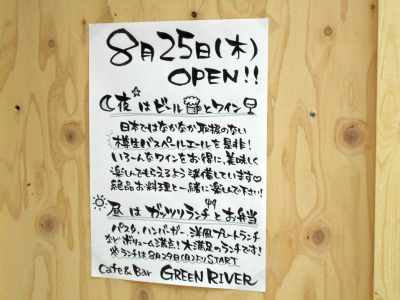 8月25日(木)
OPEN!!
夜はビールとワイン
日本ではなかなか取扱のない
樽生バスペールエールを是非!
いろーんなワインをお得に、美味しく
楽しんでもらえるよう準備しています♡
絶品お料理と一緒に楽しんで下さい!
昼はガッツリランチとお弁当
パスタ、ハンバーガー、洋風プレートランチ
など ボリューム満点!大満足のランチです!
※ランチは8月29日(月)よりSTART
Cafe&Bar GREEN RIVER